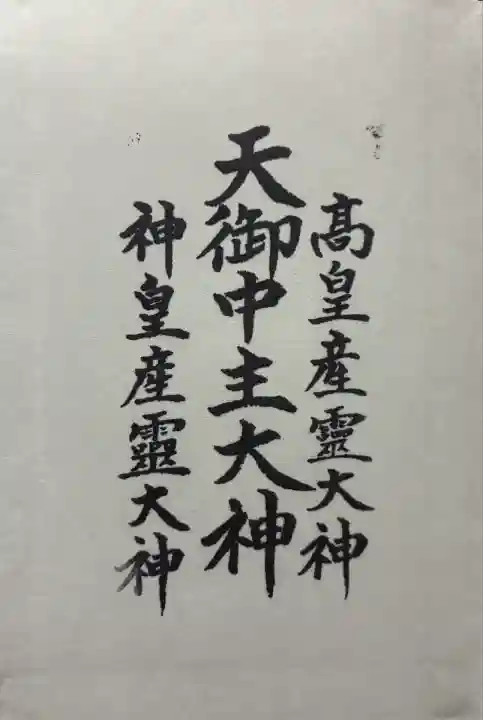 高皇産靈大神
天御中主大神
神皇産靈大神